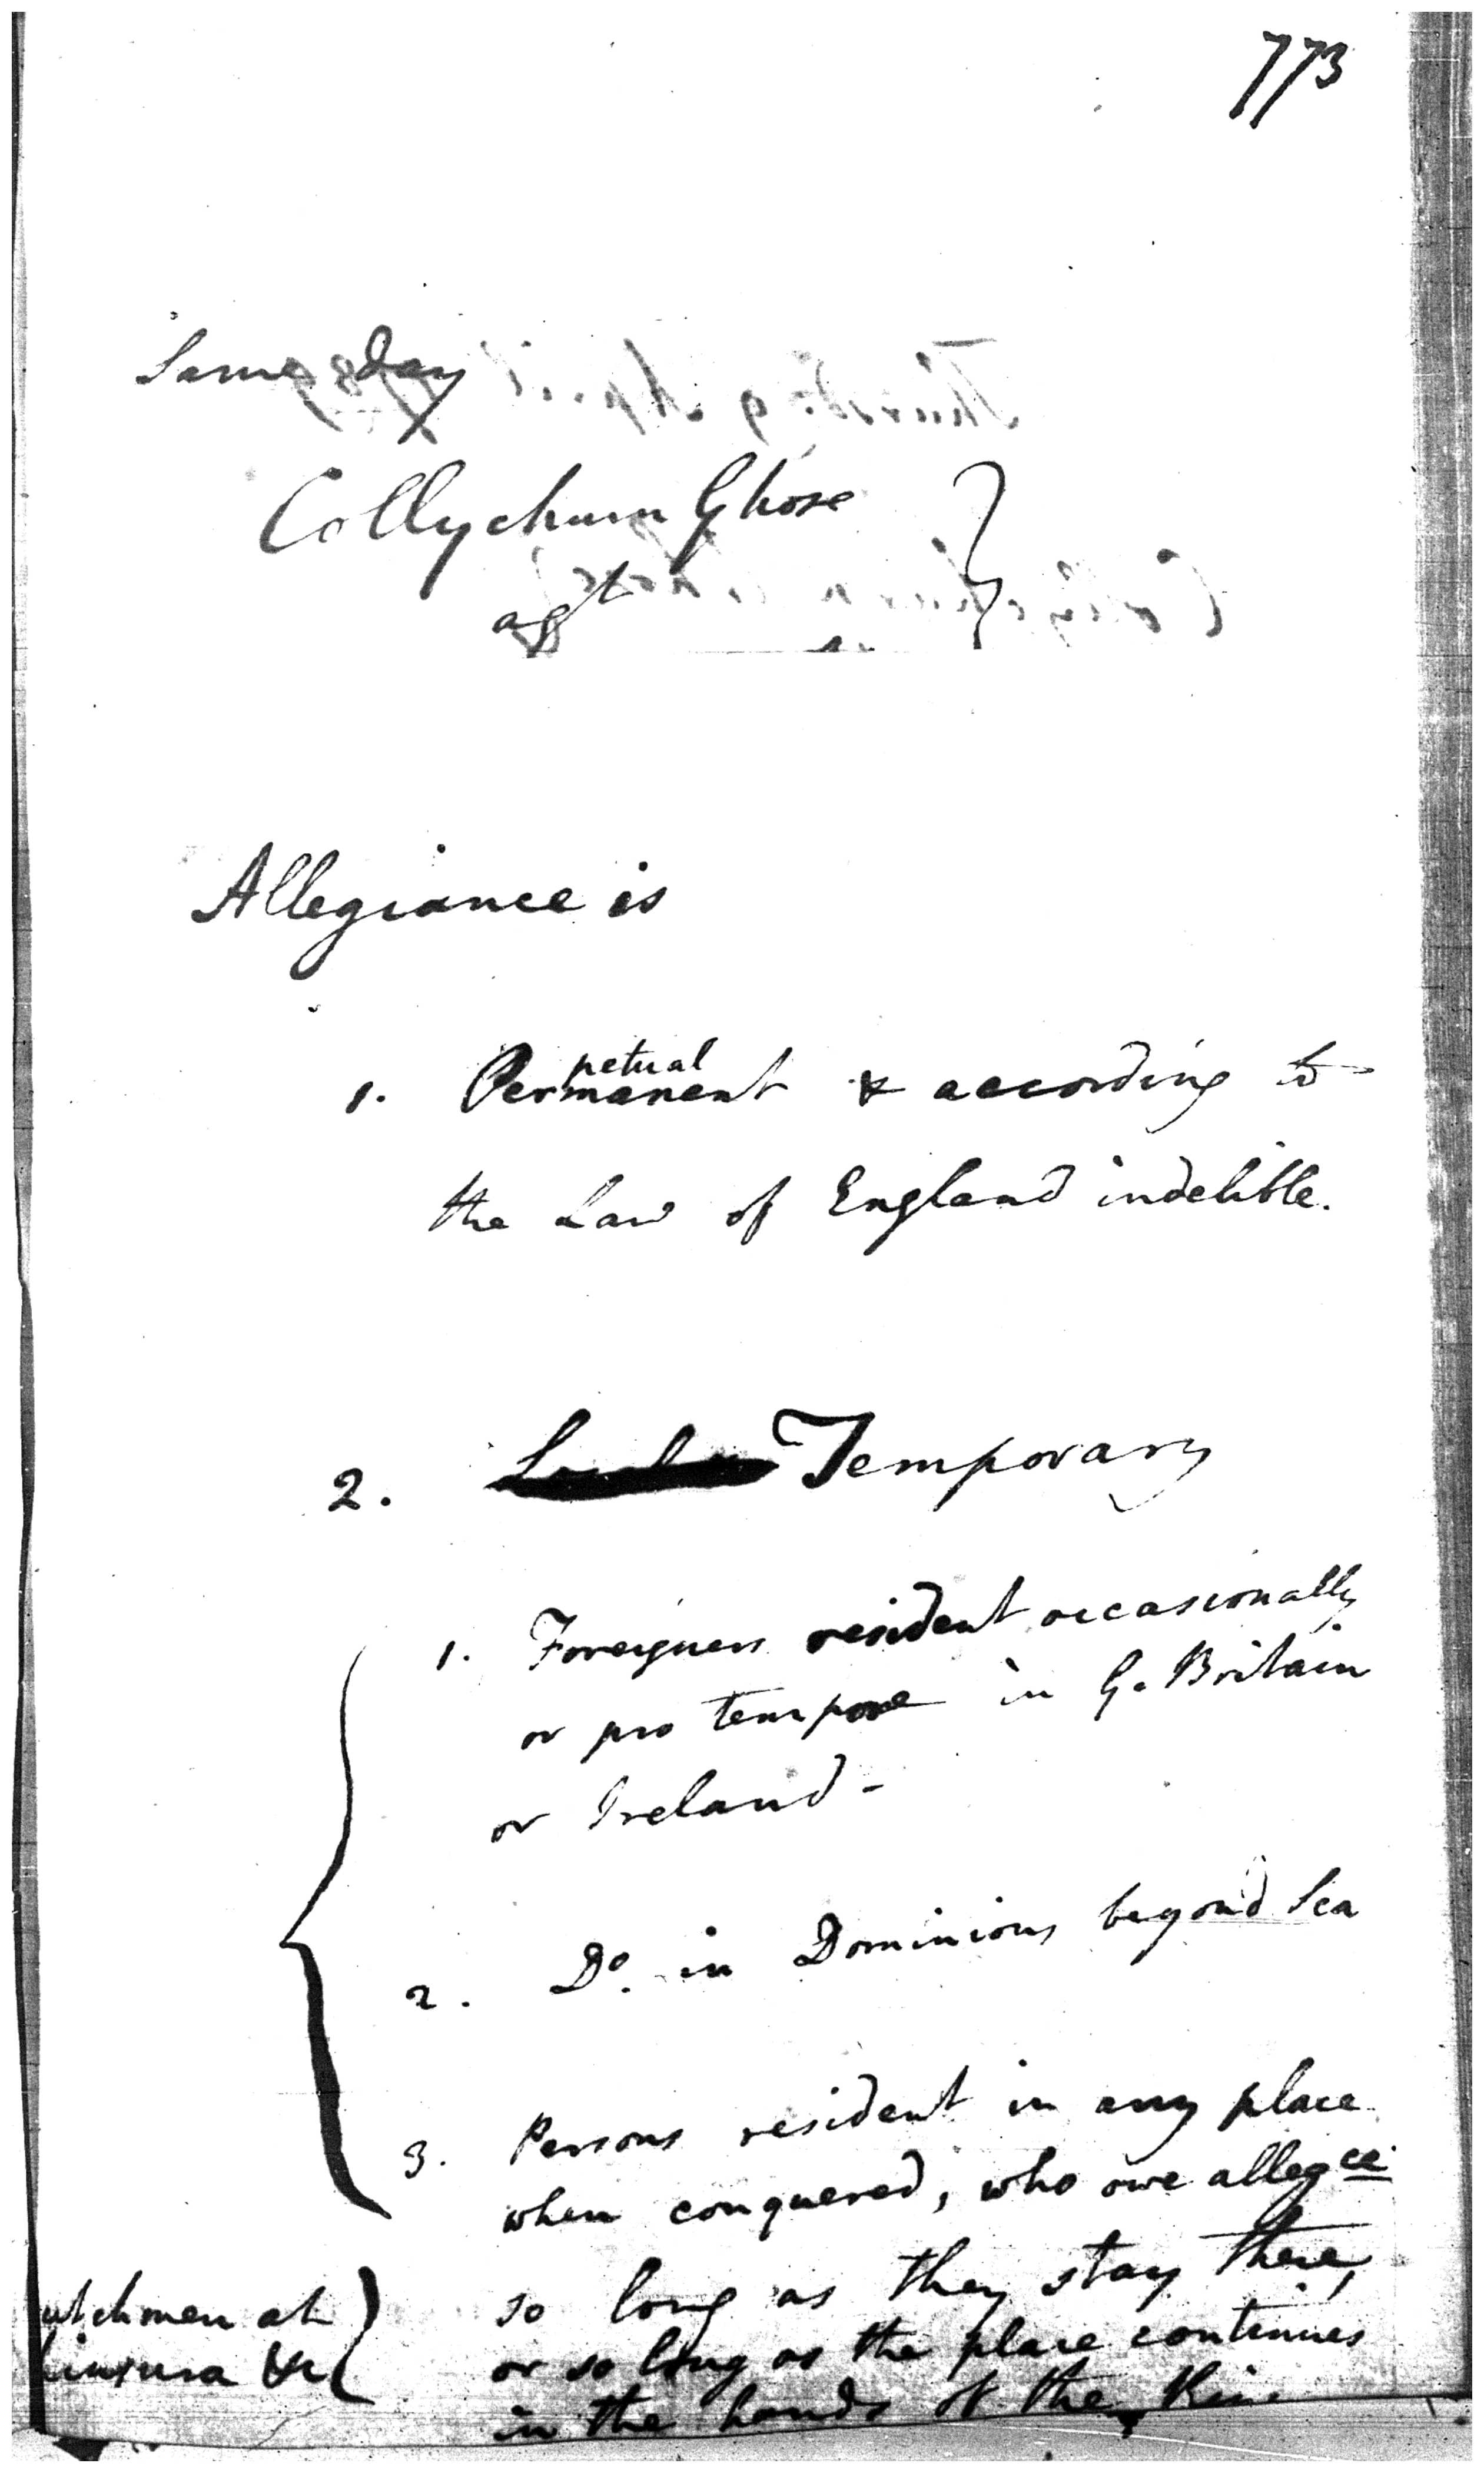 773
Same day
Collychurn Ghose
agt
Allegiance is
petual
1. Permanent & according to
the Law of England indelible.
2. Temporary
1. Foreigners resident occasionally
or pro tempore in G. Britain
or Ireland -
2. Do. in Dominions beyond Sea
3. Persons resident in any place
when conquered, who owe allegce
so long as they stay there,
utchmen at
or so long as the place continues
hinsura &c
in the hands of the King